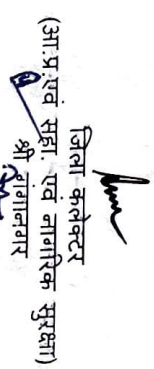 जिला कलेक्टर
(आ.प्र.एवं सहा एवं नागरिक सुरक्षा)
श्री गंगानगर